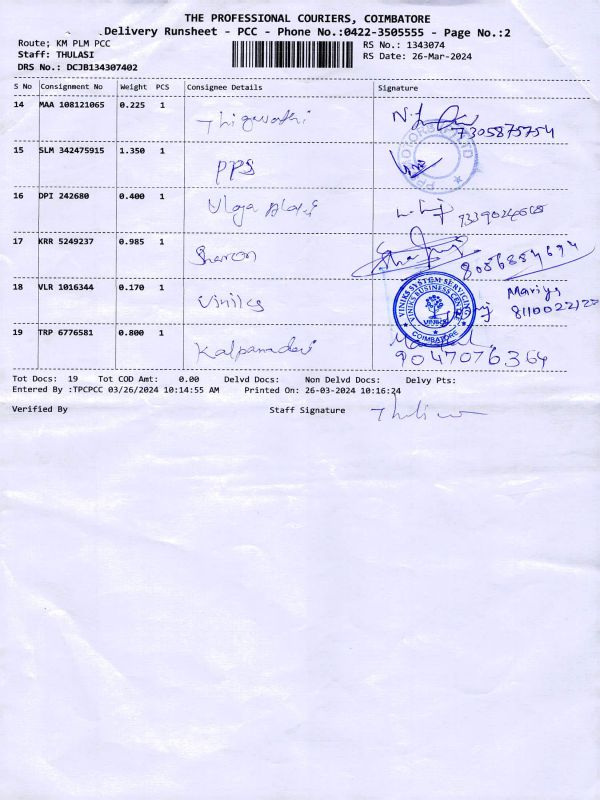 THE PROFESSIONAL COURIERS, COIMBATORE
Delivery Runsheet - PCC - Phone No.:0422-3505555 - Page No.:2
Route; KM PLM PCC
RS No.: 1343074
Staff: THULASI
RS Date: 26-Mar-2024
DRS No.: DCJB134307402
S No Consignment No Weight PCS Consignee Details Signature
14 MAA 108121065 0.225 1
7305875754
15 SLM 342475915 1.350 1 PPS
16 DPI 242680 0.400 1
17 KRR 5249237 0.985 1 Sharon
8056854694
18 VLR 1016344 0.170 1 Viniks
VINIKS SYSTEM SERVICING
VINIKS BUSINESS CENTRE
VINIKS
COIMBATORE
19 TRP 6776581 0.800 1 Kalpanadevi
9047076364
Tot Docs: 19 Tot COD Amt: 0.00 Delvd Docs: Non Delvd Docs: Delvy Pts:
Entered By :TPCPCC 03/26/2024 10:14:55 AM Printed On: 26-03-2024 10:16:24
Verified By Staff Signature